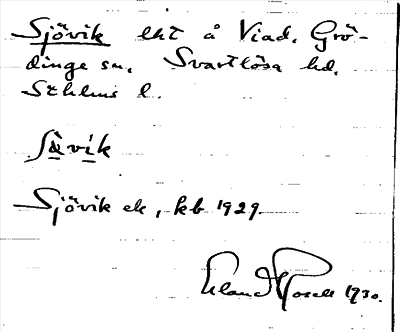 Sjövik lht å Viad, Grö-
dinge sn. Svartlösa hd.
Sthlms l.
Sjövik ek, kb 1929.
Erland Rosell 1930.